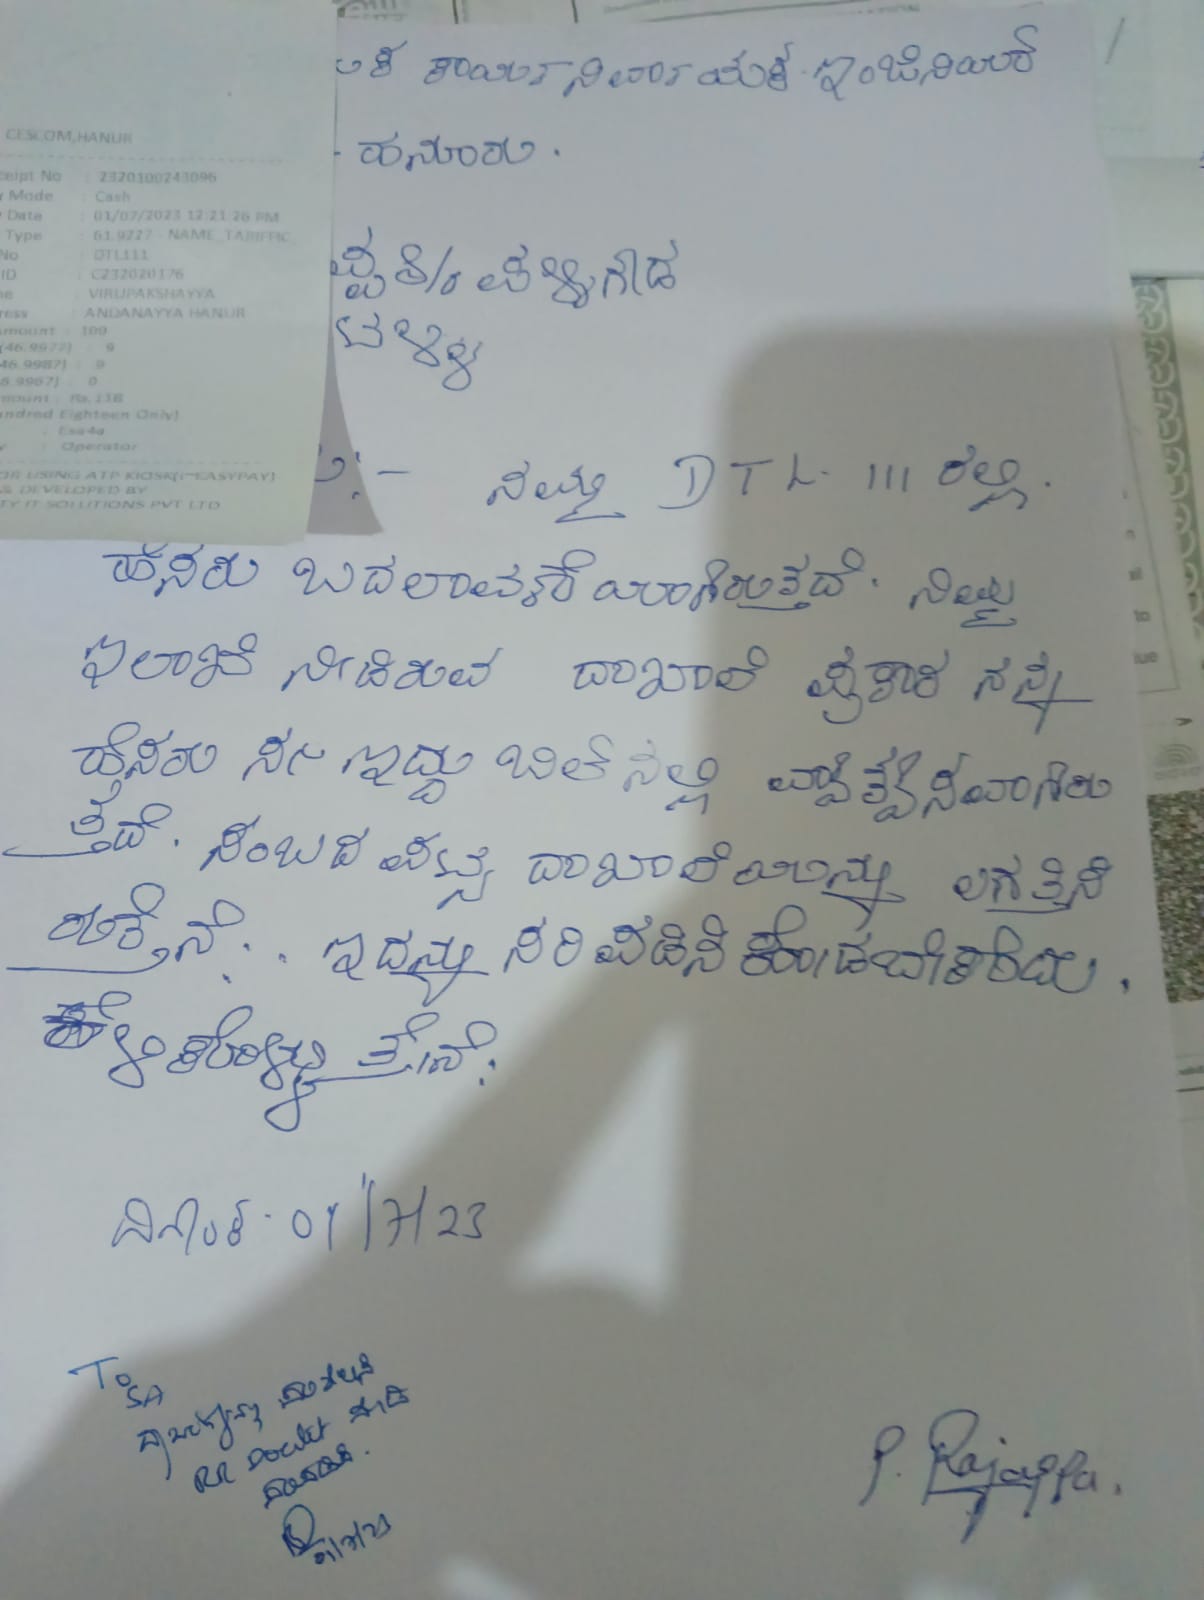 ಕ ಕಾರ್ಯನಿರ್ವಾಹಕ ಇಂಜಿನಿಯರ್
ಹನೂರು.
CESCOM,HANUR
eipt No : 2320100243096
Mode : Cash
Date : 01/07/2023 12:21:26 PM
Type : 61.9227 - NAME_TARIFFIC_
No : DTL111
ID : C232020176
me : VIRUPAKSHAYYA
ress : ANDANAYYA HANUR
mount : 109
(46.9977) : 9
46.9987) : 9
6.9967) : 0
mount : Rs.118
undred Eighteen Only)
: Esa4a
y : Operator
OR USING ATP KIOSK(i-EASYPAY)
& DEVELOPED BY
TY IT SOLUTIONS PVT LTD
ಪ್ಪ S/o
:- ನಮ್ಮ DTL-111 ರಲ್ಲಿ.
ಹೆಸರು ಬದಲಾವಣೆಯಾಗಿರುತ್ತದೆ. ನಿಮ್ಮ
ಇಲಾಖೆ ನೀಡಿರುವ ದಾಖಲೆ ಪ್ರಕಾರ ನನ್ನ
ಹೆಸರು ಸರಿ ಇದ್ದು ಬಿಲ್ ನಲ್ಲಿ ವ್ಯತ್ಯಾಸವಾಗಿರು
ತ್ತದೆ. ಸಂಬಂದ ಪಟ್ಟ ದಾಖಲೆಯನ್ನು ಲಗತ್ತಿಸಿ
ರುತ್ತೇನೆ. ಇದನ್ನು ಸರಿಪಡಿಸಿ ಕೊಡಬೇಕಾಗಿ
ಕೇಳಿಕೊಳ್ಳುತ್ತೇನೆ.
ದಿನಾಂಕ: 01/7/23
To
SA
RR Docket
1/7/23
P. Rajappa.